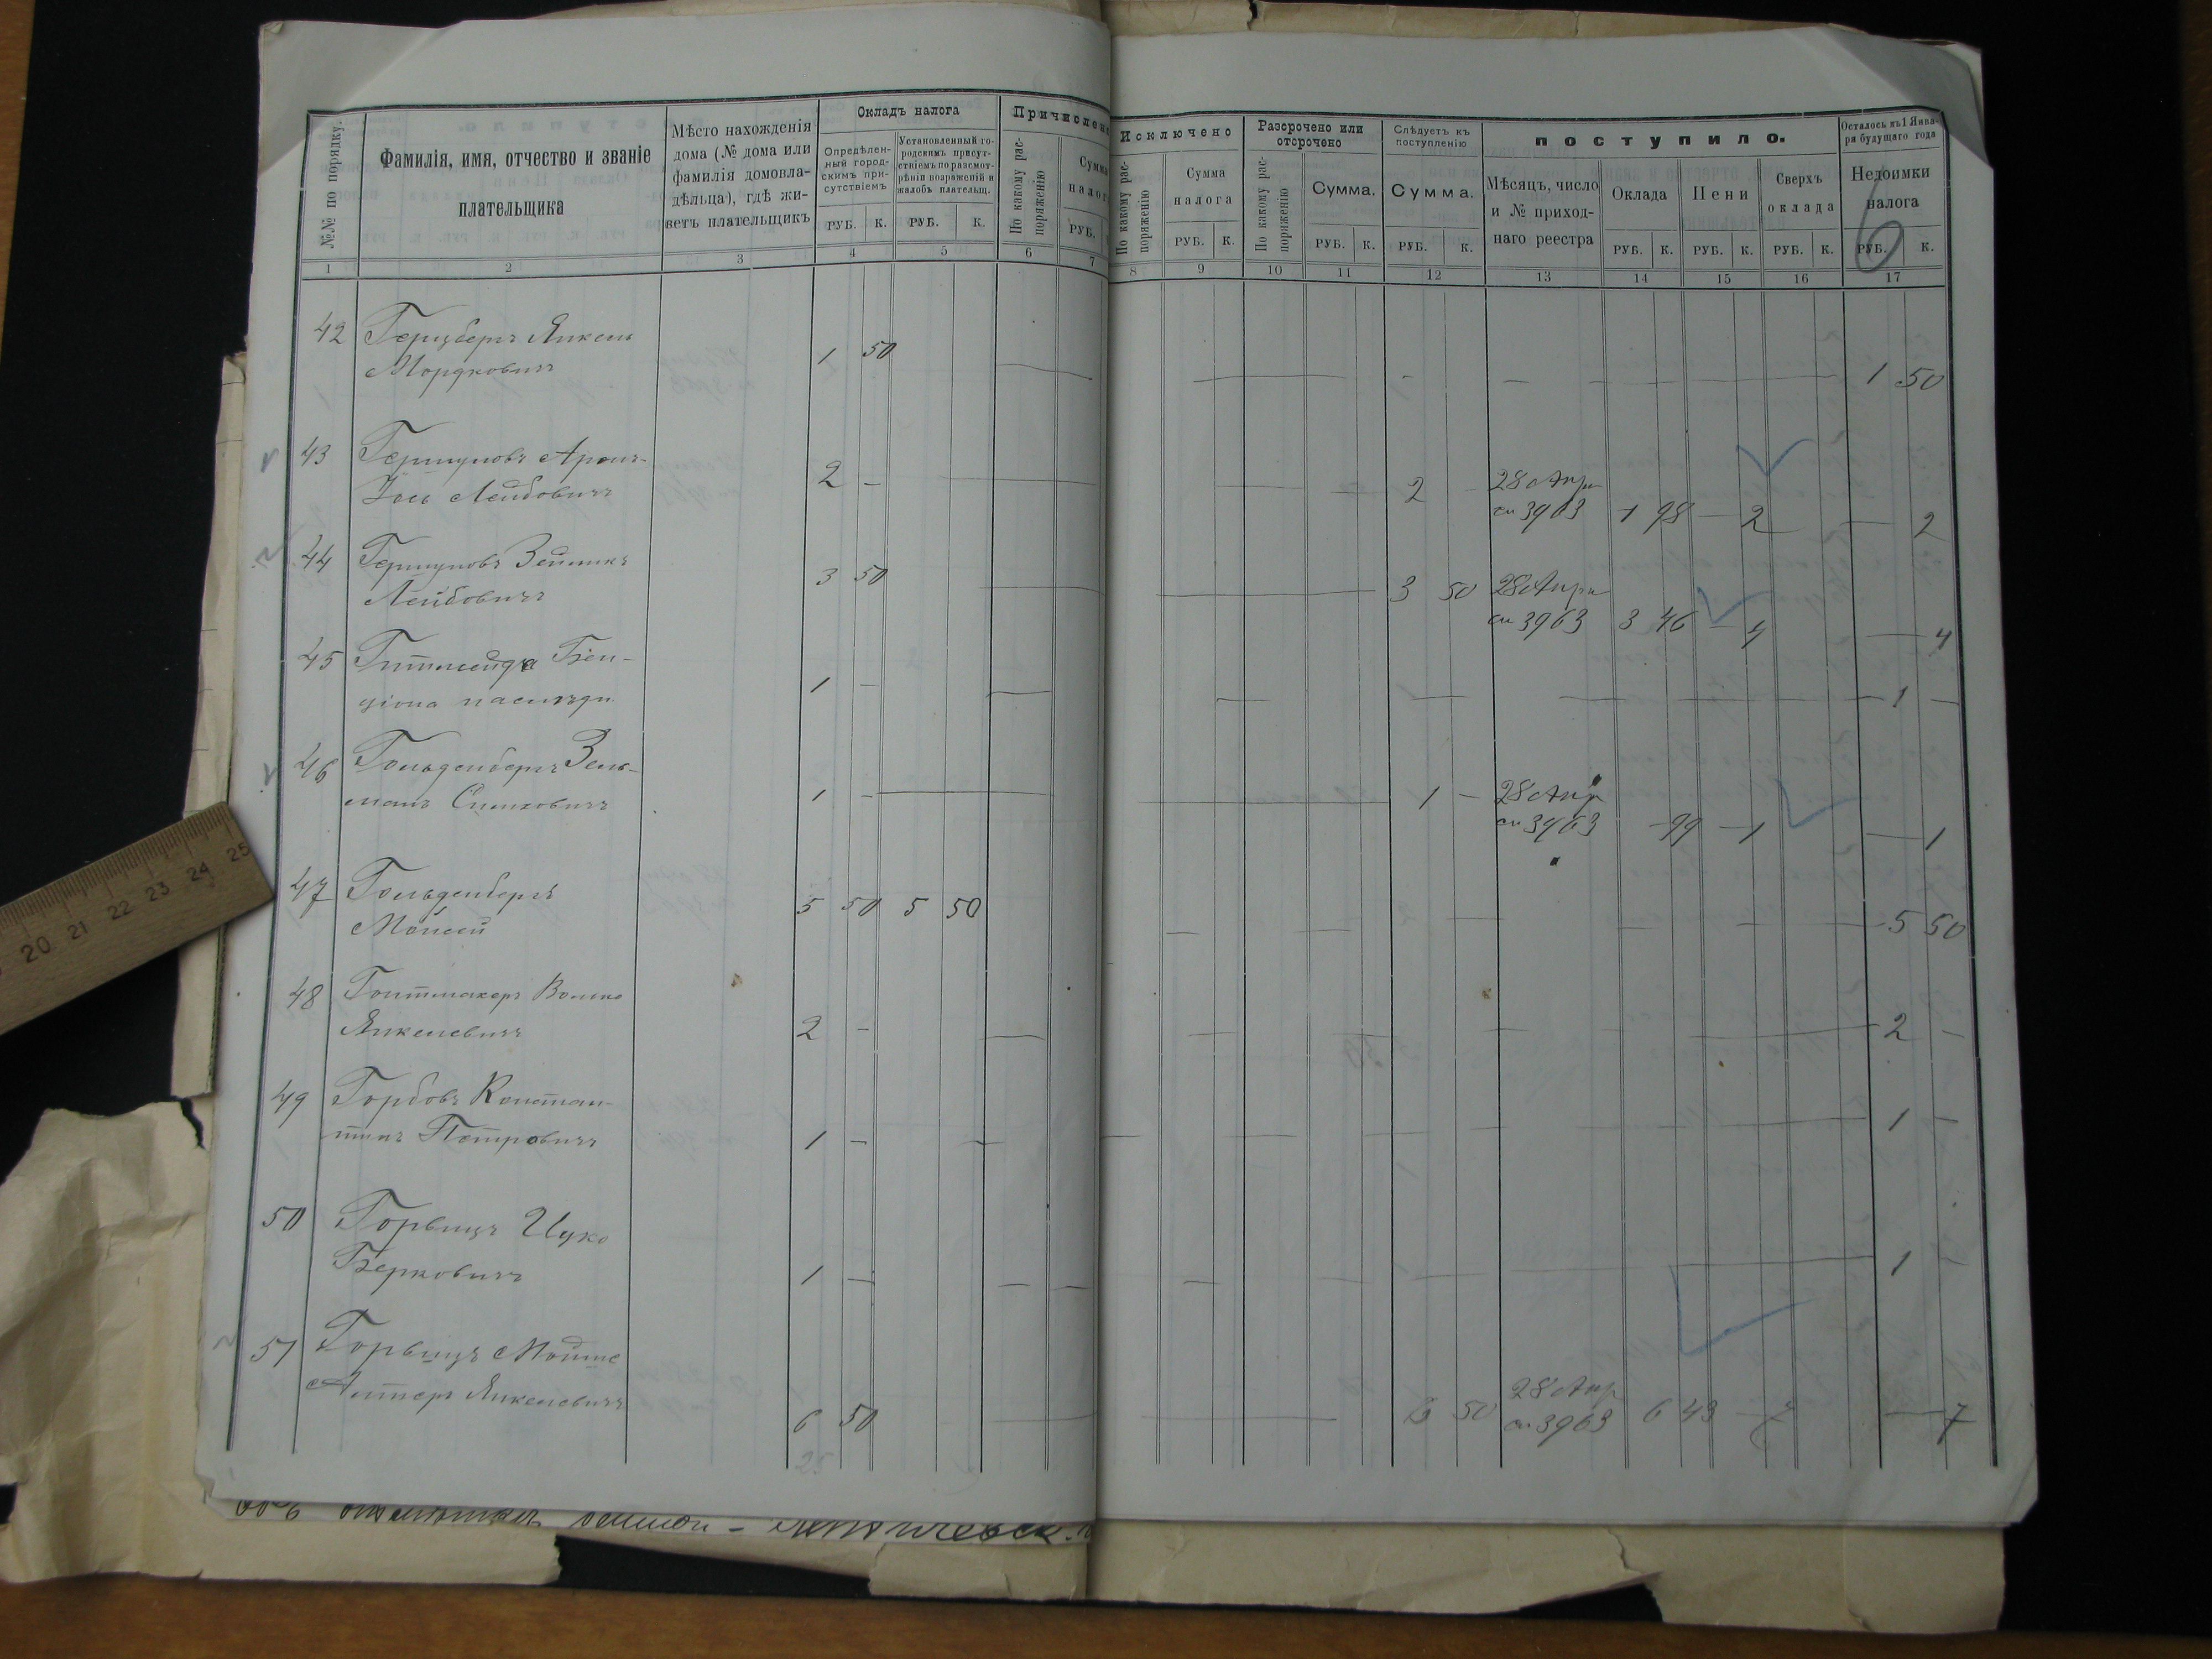 №№ по порядку.
Фамилія, имя, отчество и званіе
плательщика
Мѣсто нахожденія
дома (№ дома или
фамилія домовла-
дѣльца), гдѣ жи-
ветъ плательщикъ
Окладъ налога
Опредѣлен-
ный город-
скимъ при-
сутствіемъ
Установленный го-
родскимъ присут-
ствіемъ по разсмот-
рѣніи возраженій и
жалобъ плательщ.
Причислено
По какому рас-
поряженію
Сумма
налога
Исключено
По какому рас-
поряженію
Сумма
налога
Разсрочено или
отсрочено
По какому рас-
поряженію
Сумма.
Слѣдуетъ къ
поступленію
Сумма.
поступило.
Мѣсяцъ, число
и № приход-
наго реестра
Оклада
Пени
Сверхъ
оклада
Осталось къ 1 Янва-
ря будущаго года
Недоимки
налога
6
РУБ. К. РУБ. К. РУБ. РУБ. К. РУБ. К. РУБ. К. РУБ. К. РУБ. К. РУБ. К. РУБ. К.
1 2 3 4 5 6 7 8 9 10 11 12 13 14 15 16 17
42 Герцбергъ Янкель
Мордковичъ 1 50 — — — — — 1 50
43 Гершуновъ Аронъ-
Іось Лейбовичъ 2 — 2 — 28 Апр
ст 3963 1 98 — 2 — 2
44 Гершуновъ Зейликъ
Лейбовичъ 3 50 3 50 28 Апр
ст 3963 3 46 — 4 — 4
45 Бен-
ціона наслѣдн. 1 — — — 1 —
46 Гольденбергъ Зель-
манъ Симховичъ 1 — 1 — 28 Апр
ст 3963 — 99 — 1 — 1
47 Гольденбергъ
Мойсей 5 50 5 50 — — 5 50
48 Гонтмахеръ Волько
Янкелевичъ 2 — — — 2 —
49 Горбовъ Констан-
тинъ Петровичъ 1 — — — 1 —
50 Горвицъ Ицко
Берковичъ 1 — — — 1
51 Горвицъ Мойше
Алтеръ Янкелевичъ 6 50 6 50 28 Апр
ст 3963 6 43 — 7 — 7
25
20 21 22 23 24 25